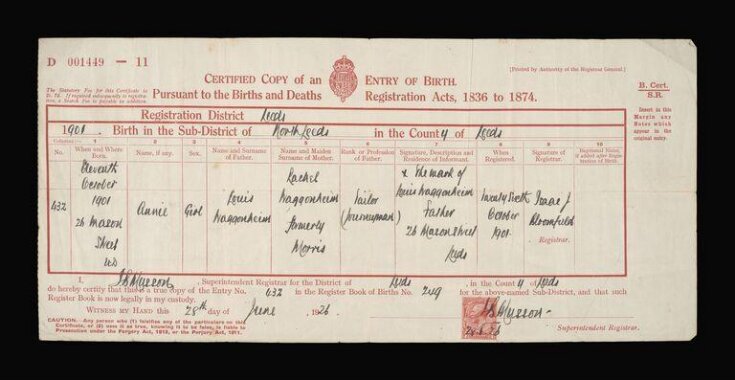 D 001449 — 11
CERTIFIED COPY of an ENTRY OF BIRTH.
[Printed by Authority of the Registrar General.]
B. Cert.
S.R.
The Statutory Fee for this Certificate is
Pursuant to the Births and Deaths Registration Acts, 1836 to 1874.
Insert in this
Margin any
Notes which
appear in the
original entry.
Registration District Leeds
1901. Birth in the Sub-District of North Leeds in the County of Leeds
Columns:— 1 2 3 4 5 6 7 8 9 10
No. When and Where Born. Name, if any. Sex. Name and Surname of Father. Name and Maiden Surname of Mother. Rank or Profession of Father. Signature, Description and Residence of Informant. When Registered. Signature of Registrar. Baptismal Name, if added after Registration of Birth.
432
Eleventh
October
1901
26 Mason
Street
Annie
Girl
Louis
Waggenheim
Rachel
Waggenheim
formerly
Morris
Tailor
(Journeyman)
X The mark of
Louis Waggenheim
Father
26 Mason Street
Leeds
Twenty Sixth
October
1901
Isaac J
Bloomfield
Registrar.
I, , Superintendent Registrar for the District of Leeds, in the County of Leeds
do hereby certify that this is a true copy of the Entry No. 432 in the Register Book of Births No. 249 for the above-named Sub-District, and that such
Register Book is now legally in my custody.
WITNESS MY HAND this 28th day of June, 1926.
CAUTION.—Any person who (1) falsifies any of the particulars on this
Certificate, or (2) uses it as true, knowing it to be false, is liable to
Prosecution under the Forgery Act, 1913, or the Perjury Act, 1911.
28.6.26
Superintendent Registrar.